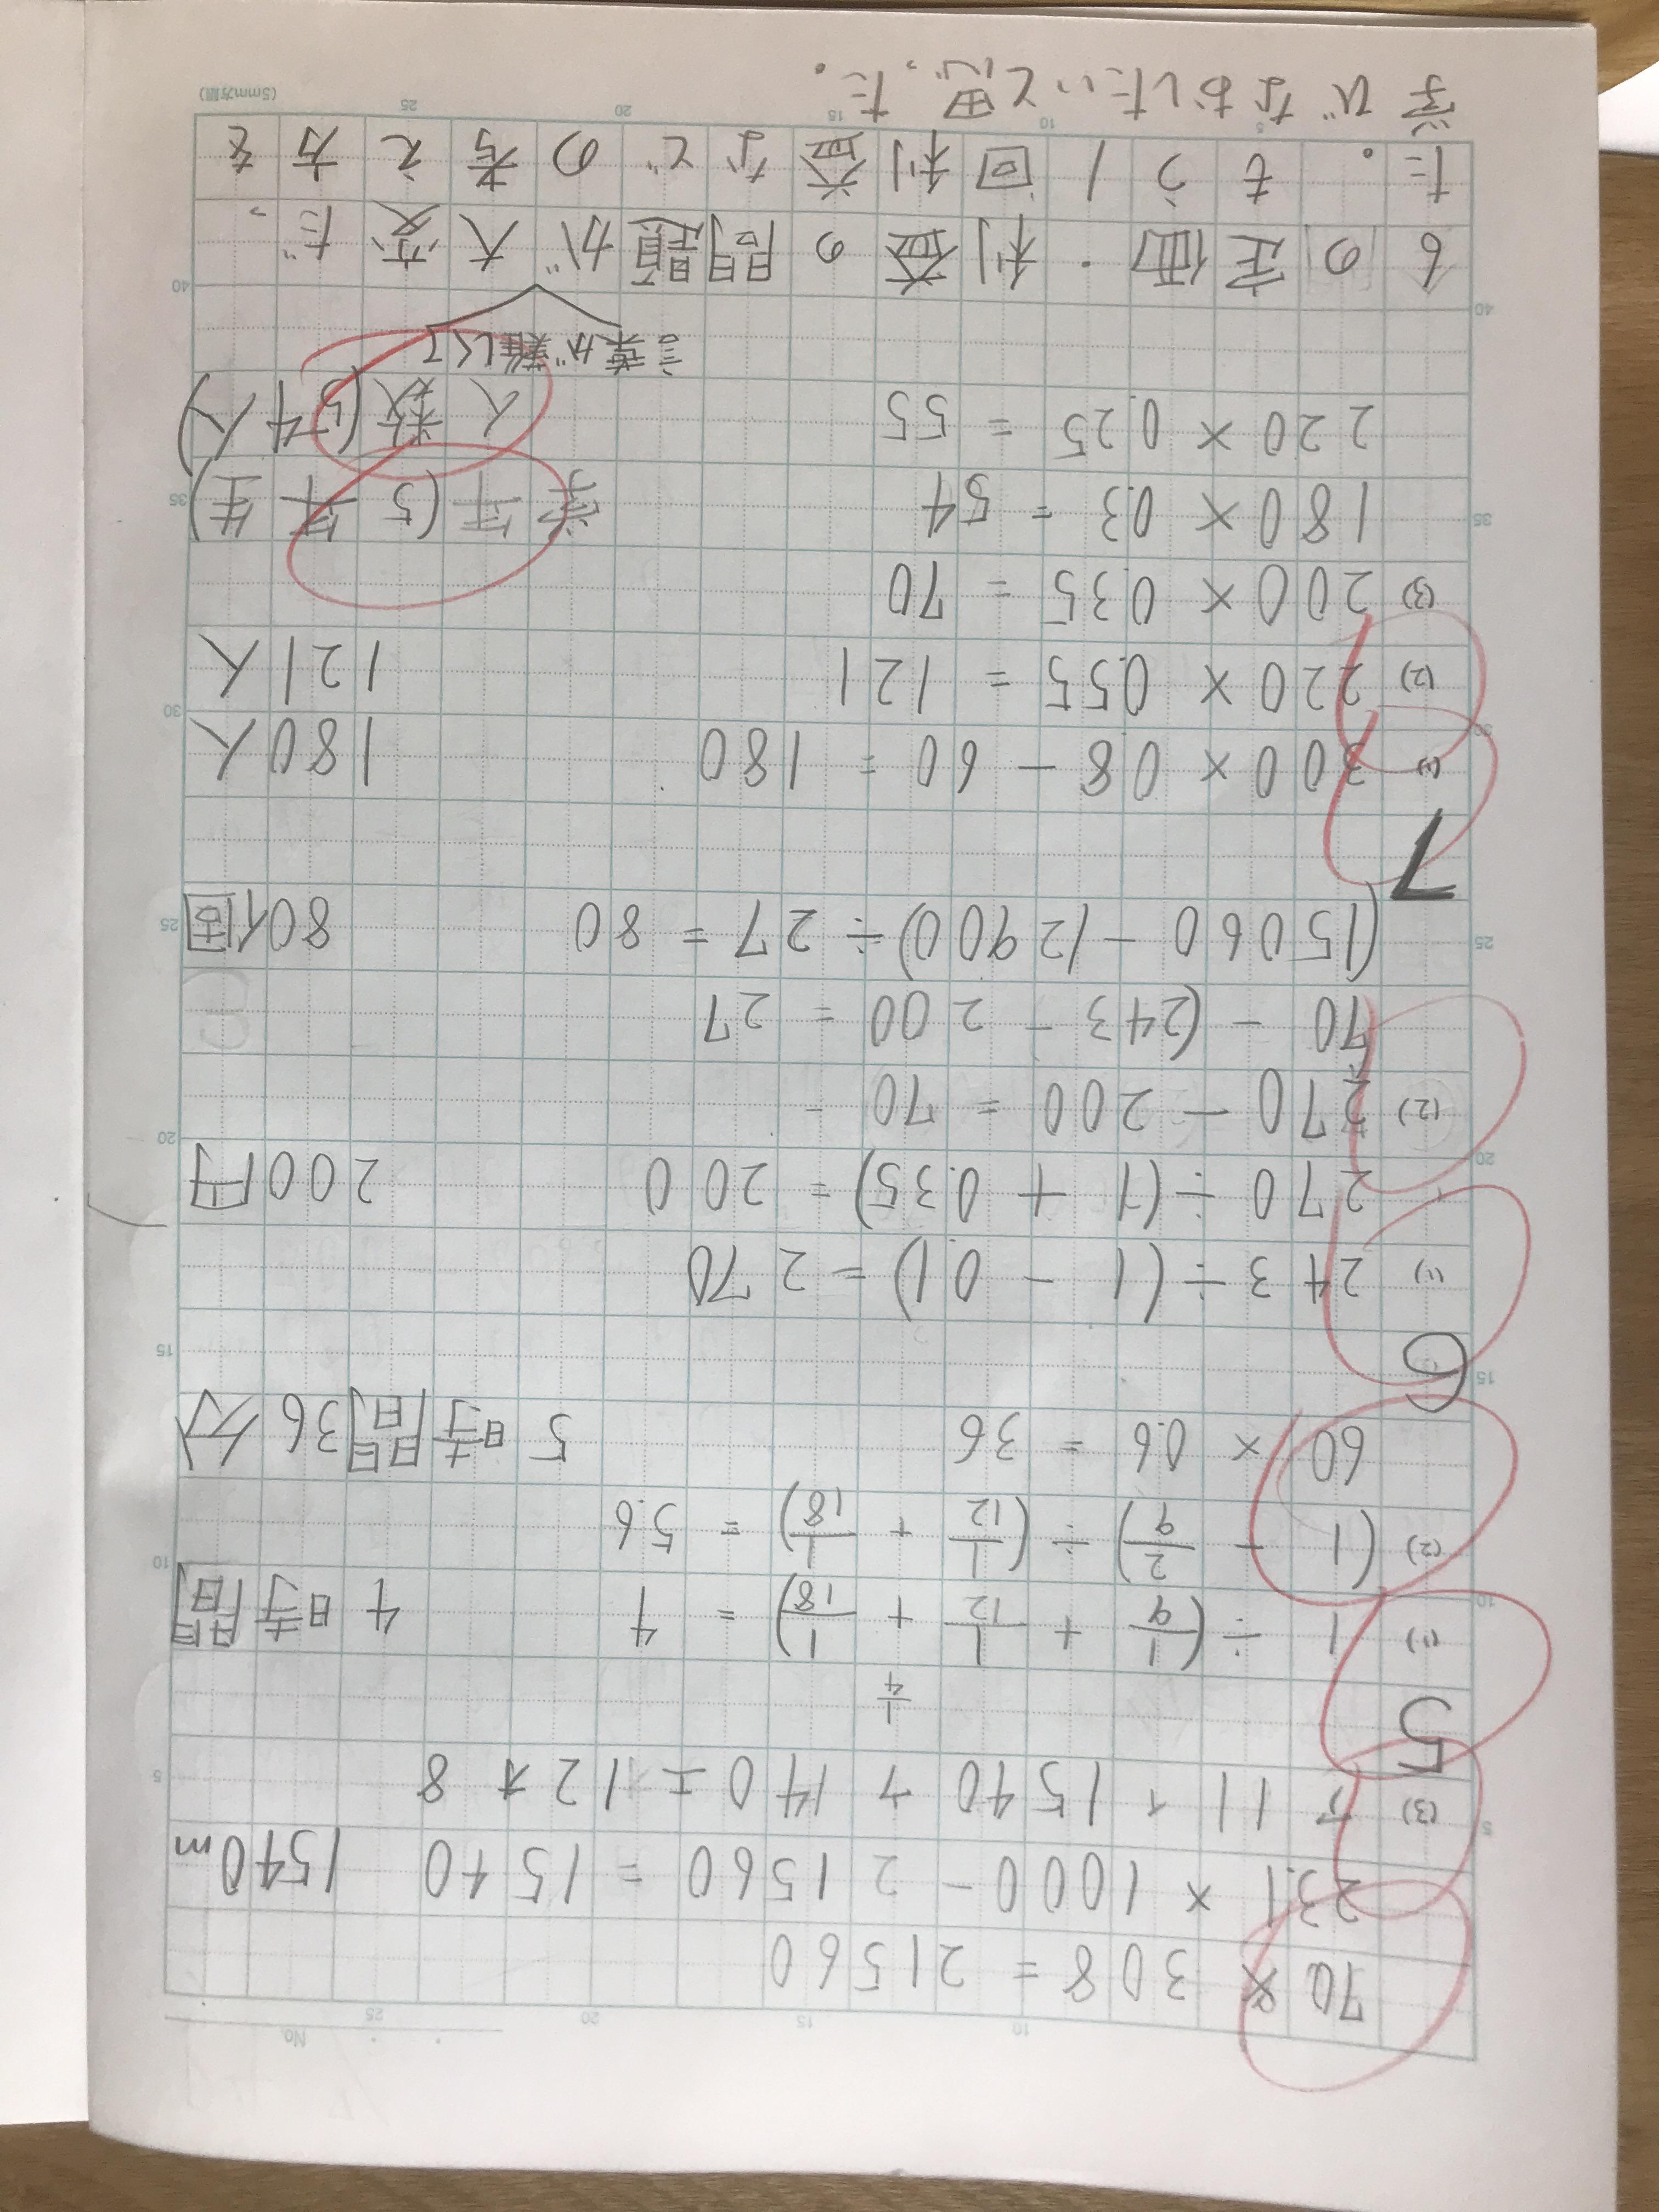 No.
70 × 308 = 21560
23.1 × 1000 - 21560 = 1540 1540m
(3) 11 1540 ÷ 140 = 12 8
1/4
5
(1) 1 ÷ (1/9 + 1/12 + 1/18) = 4 4時間
(2) (1 - 2/9) ÷ (1/12 + 1/18) = 5.6
60 × 0.6 = 36 5時間36分
6
(1) 243 ÷ (1 - 0.1) = 270
270 ÷ (1 + 0.35) = 200 200円
(2) 270 - 200 = 70
70 - (243 - 200 = 27
(15060 - 12900) ÷ 27 = 80 80個
7
(1) 300 × 0.8 - 60 = 180 180人
(2) 220 × 0.55 = 121 121人
(3) 200 × 0.35 = 70
180 × 0.3 = 54 学年(5年生)
220 × 0.25 = 55 人数(54人)
言葉が難しくて
6の定価・利益の問題が大変だっ
た。もう1回利益などの考え方を
学びなおしたいと思った。
(5mm方眼)